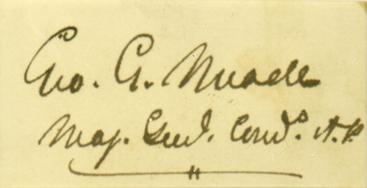 Geo. G. Meade
Maj. Genl. Comdg. A.P.